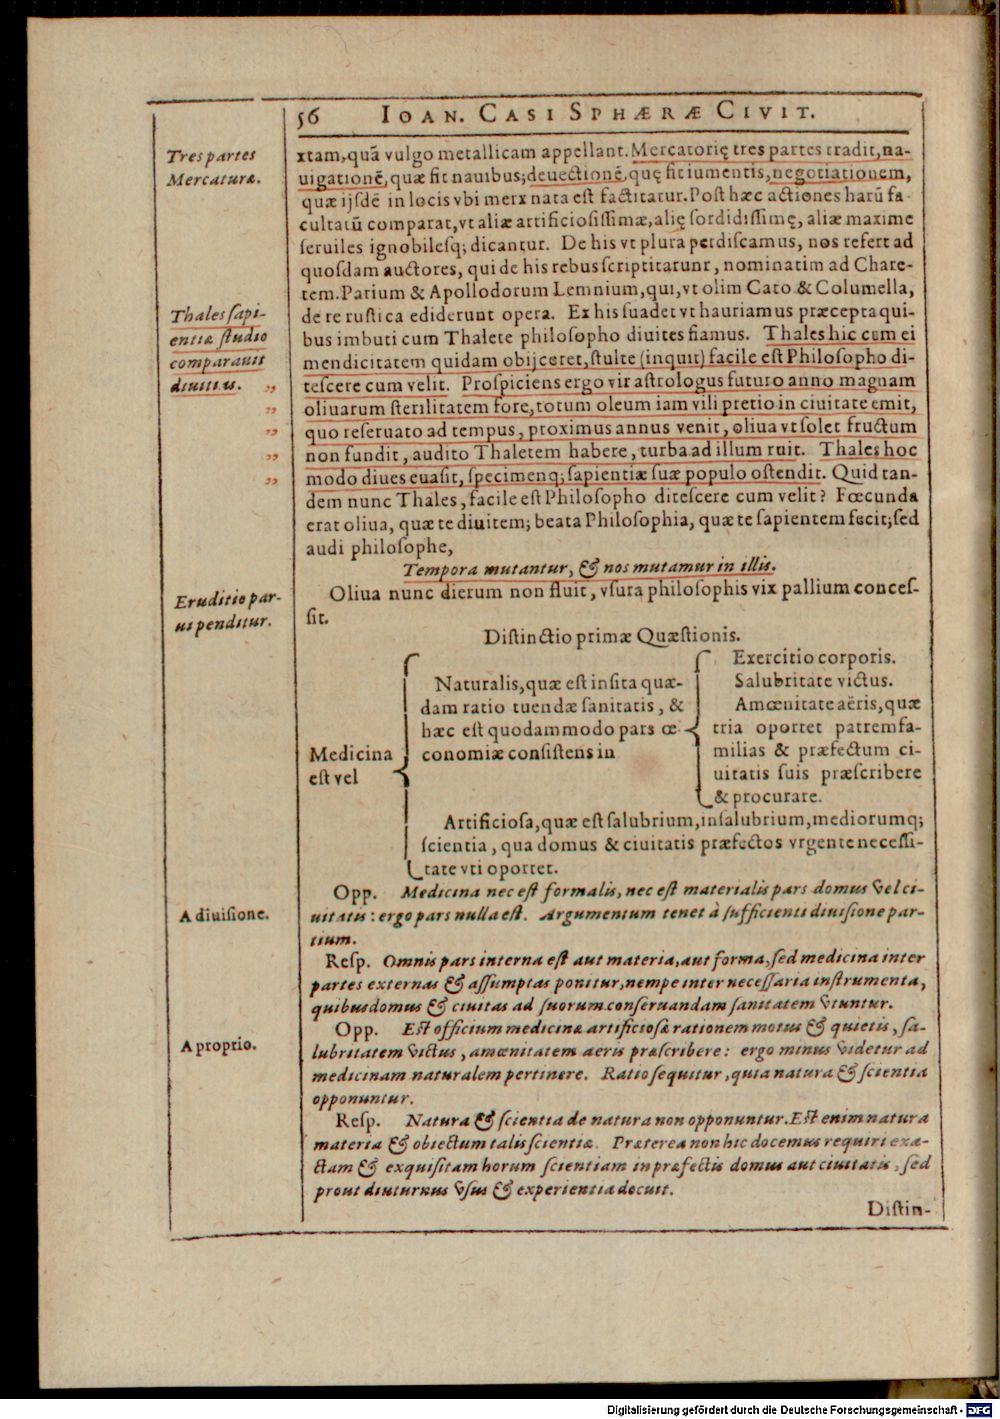 56 IOAN. CASI SPHÆRÆ CIVIT.
Tres partes
Mercaturæ.
xtam, quã vulgo metallicam appellant. Mercatorię tres partes tradit, na-
uigationẽ, quæ fit nauibus; deuectionẽ, quę fit iumentis, negotiationem,
quæ ijsdẽ in locis vbi merx nata est factitatur. Post hæc actiones harũ fa-
cultatũ comparat, vt aliæ artificiosissimæ, alię sordidissimę, aliæ maxime
seruiles ignobilesq; dicantur. De his vt plura perdiscamus, nos refert ad
quosdam auctores, qui de his rebus scriptitarunt, nominatim ad Chare-
tem. Parium & Apollodorum Lemnium, qui, vt olim Cato & Columella,
de re rustica ediderunt opera. Ex his suadet vt hauriamus præcepta qui-
bus imbuti cum Thalete philosopho diuites fiamus. Thales hic cum ei
mendicitatem quidam obijceret, stulte (inquit) facile est Philosopho di-
tescere cum velit. Prospiciens ergo vir astrologus futuro anno magnam
oliuarum sterilitatem fore, totum oleum iam vili pretio in ciuitate emit,
quo reseruato ad tempus, proximus annus venit, oliua vt solet fructum
non fundit, audito Thaletem habere, turba ad illum ruit. Thales hoc
modo diues euasit, specimenq; sapientiæ suæ populo ostendit. Quid tan-
dem nunc Thales, facile est Philosopho ditescere cum velit? Fœcunda
erat oliua, quæ te diuitem; beata Philosophia, quæ te sapientem fecit; sed
audi philosophe,
Thales sapi-
entiæ studio
comparauit
diuitius. „
„
„
„
„
Tempora mutantur, & nos mutamur in illis.
Oliua nunc dierum non fluit, vsura philosophis vix pallium conces-
sit.
Eruditio par-
ui penditur.
Distinctio primæ Quæstionis.
Medicina
est vel
Naturalis, quæ est insita quæ-
dam ratio tuendæ sanitatis, &
hæc est quodammodo pars œ-
conomiæ consistens in
Exercitio corporis.
Salubritate victus.
Amœnitate aëris, quæ
tria oportet patremfa-
milias & præfectum ci-
uitatis suis præscribere
& procurare.
Artificiosa, quæ est salubrium, insalubrium, mediorumq;
scientia, qua domus & ciuitatis præfectos vrgente necessi-
tate vti oportet.
A diuisione.
Opp. Medicina nec est formalis, nec est materialis pars domus vel ci-
uitatis: ergo pars nulla est. Argumentum tenet à sufficienti diuisione par-
tium.
Resp. Omnis pars interna est aut materia, aut forma, sed medicina inter
partes externas & assumptas ponitur, nempe inter necessaria instrumenta,
quibus domus & ciuitas ad suorum conseruandam sanitatem vtuntur.
A proprio.
Opp. Est officium medicinæ artificiosæ rationem motus & quietis, sa-
lubritatem victus, amœnitatem aeris præscribere: ergo minus videtur ad
medicinam naturalem pertinere. Ratio sequitur, quia natura & scientia
opponuntur.
Resp. Natura & scientia de natura non opponuntur. Est enim natura
materia & obiectum talis scientiæ. Præterea non hic docemus requiri exa-
ctam & exquisitam horum scientiam in præfectis domus aut ciuitatis, sed
prout diuturnus vsus & experientia docuit.
Distin-
Digitalisierung gefördert durch die Deutsche Forschungsgemeinschaft - DFG